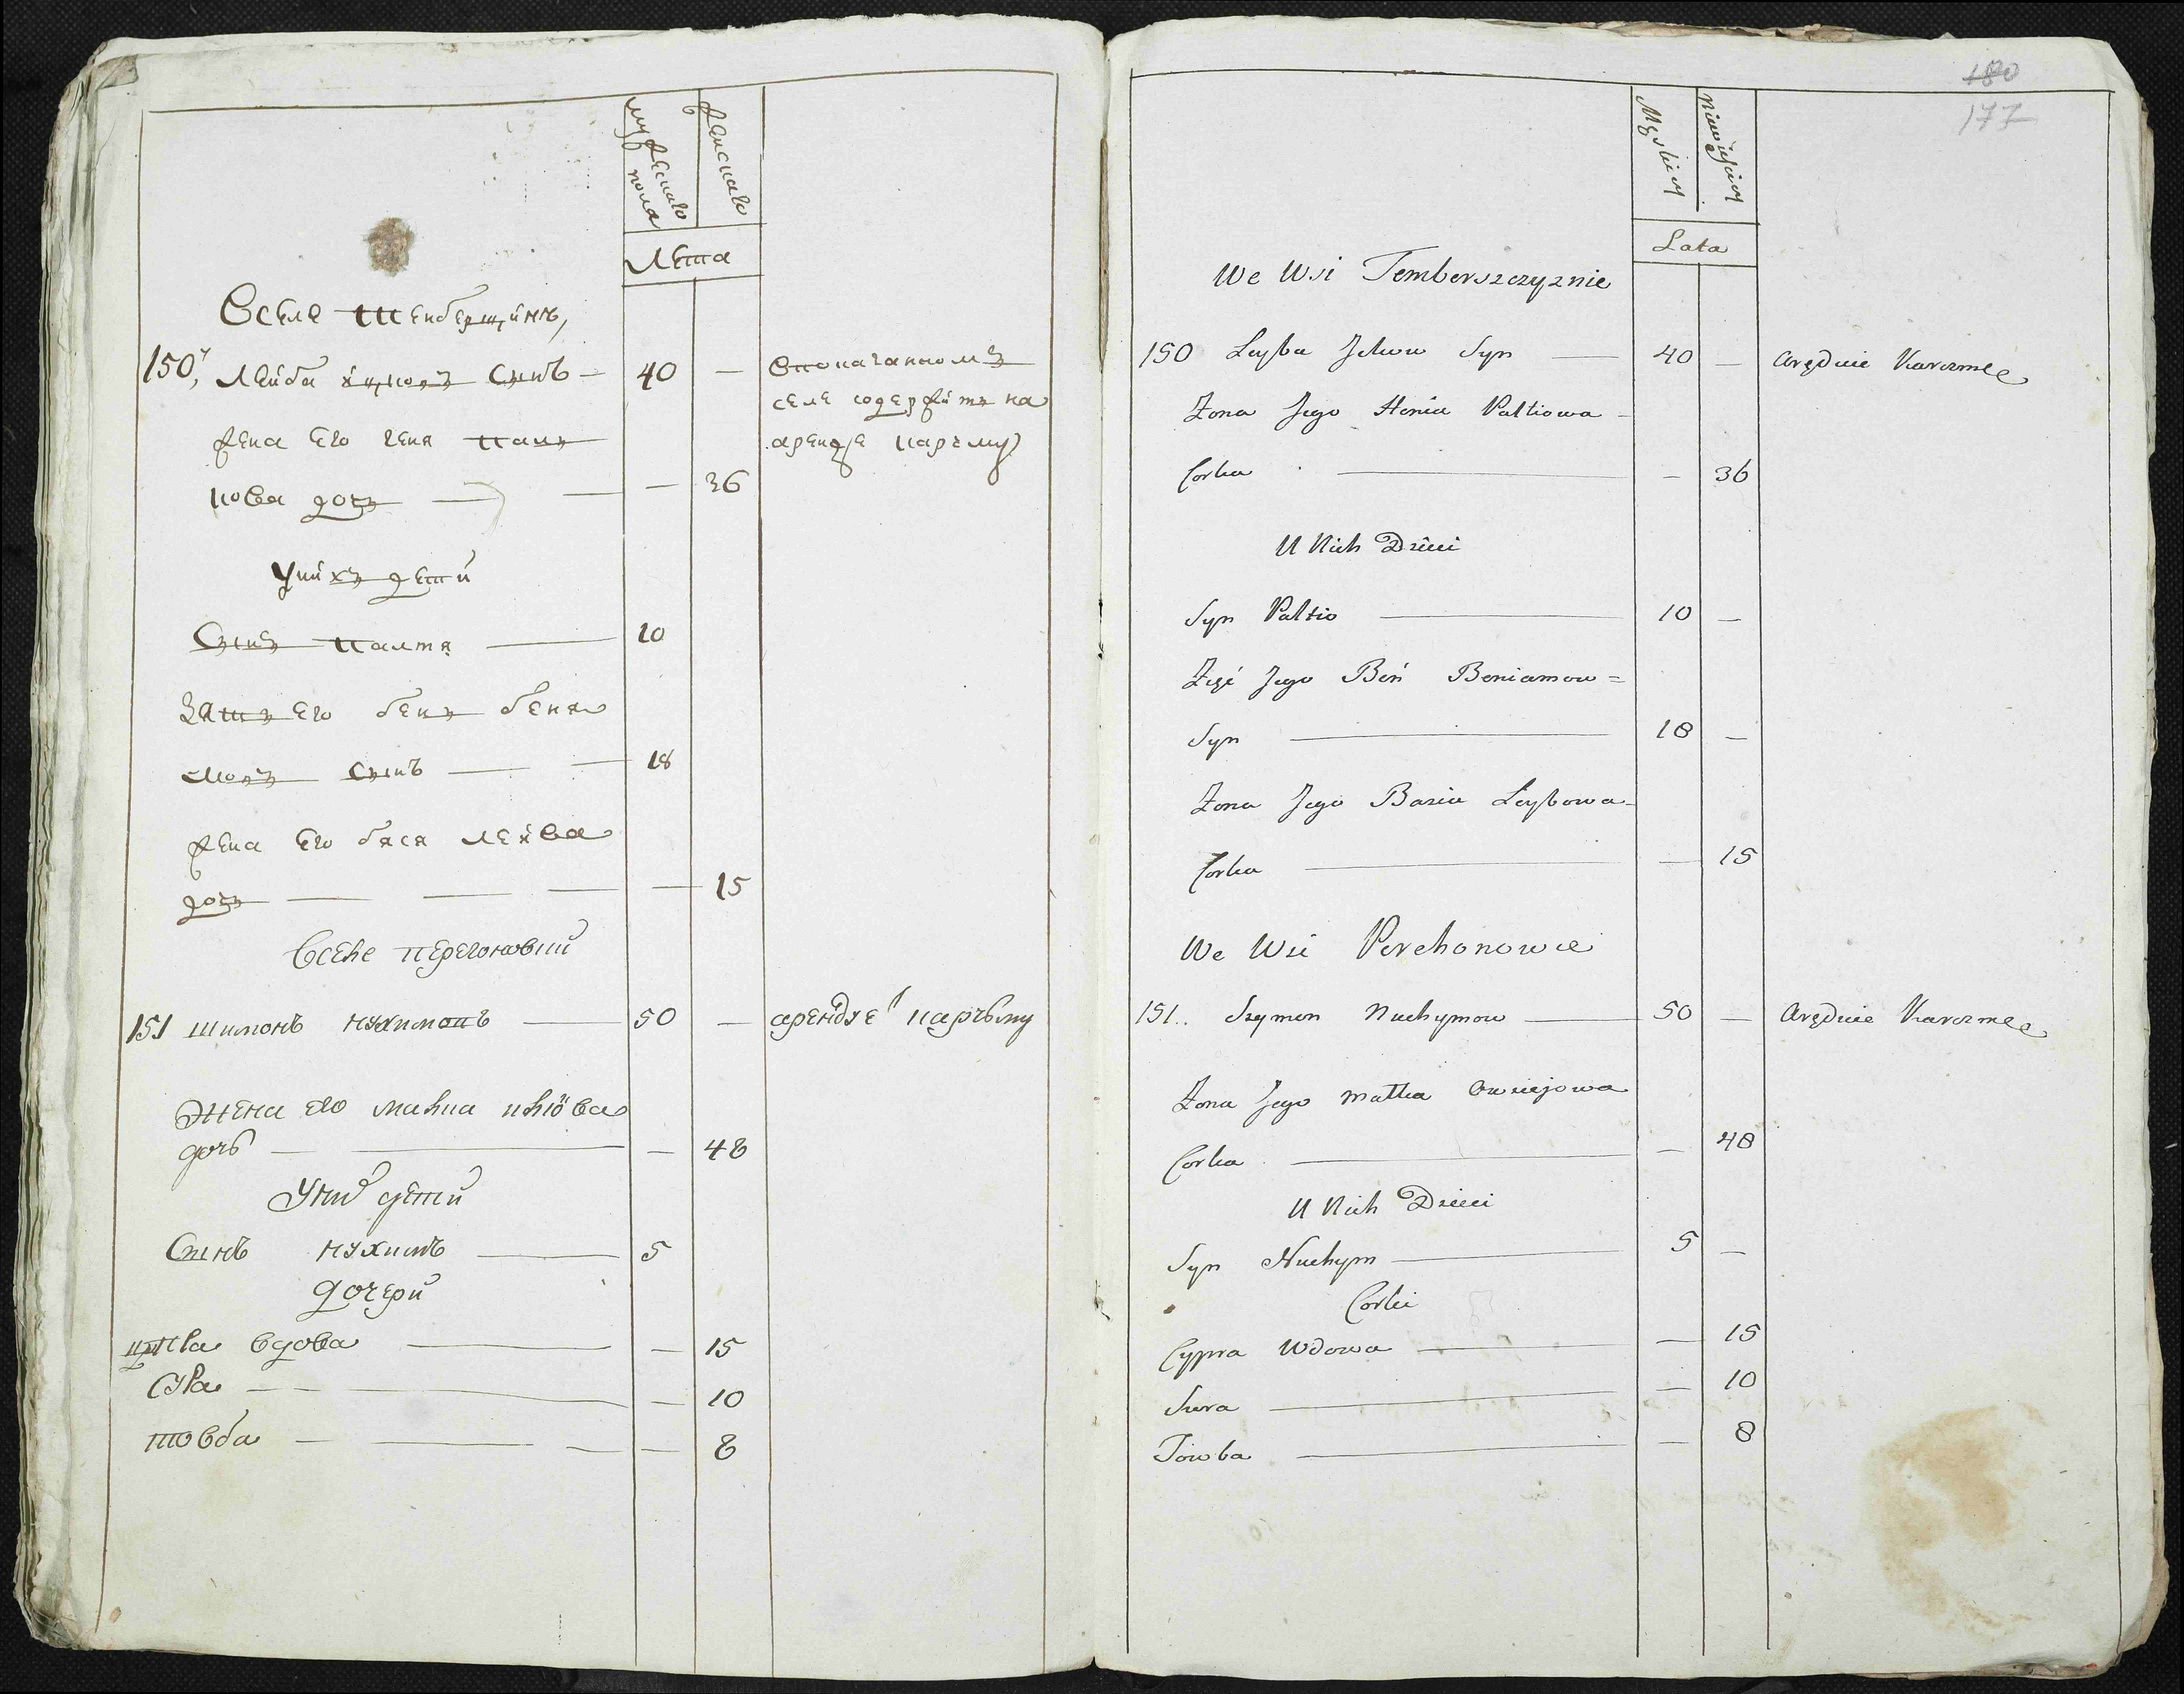 мужескаго пола
женскаго
Лета
Вселе тенберщинѣ,
150, Лейба ицковъ Сынъ — 40 — Впоказанномъ
селе содержитъ на
жена Его геня палт аренде карчму
кова дочь — — 36
Унихъ дети
Сынъ палтя — 10
Зять Его бень беня
мовъ Сынъ — 18
жена Его бася лейва
дочь — — 15
Вселе перегоновки
151 шимонъ нухимовъ — 50 — арендуе карчьму
Жена его малка
дочь — — 48
Уних дети
Сынъ нухимъ — 5
дочери
вдова — — 15
Сура — — 10
товба — — 8
180
177
Męskiey
Niewieściey
Lata
We Wsi Temberszczyznie
150 Leyba Jckow Syn — 40 — Aręduie Karczmę
Zona Jego Henia Paltiowa
Corka — — 36
U Nich Dzieci
Syn Paltio — 10 —
Zięć Jego Beń Beniamow=
Syn — 18 —
Zona Jego Basia Leybowa
Corka — — 15
We Wsi Perehonowce
151.. Szymon Nuchymow — 50 — Aręduie Karczmę
Zona Jego Malka Owsiejowa
Corka — — 48
U Nich Dzieci
Syn Nuchym — 5 —
Corki
Cypra Wdowa — — 15
Sura — — 10
Towba — — 8